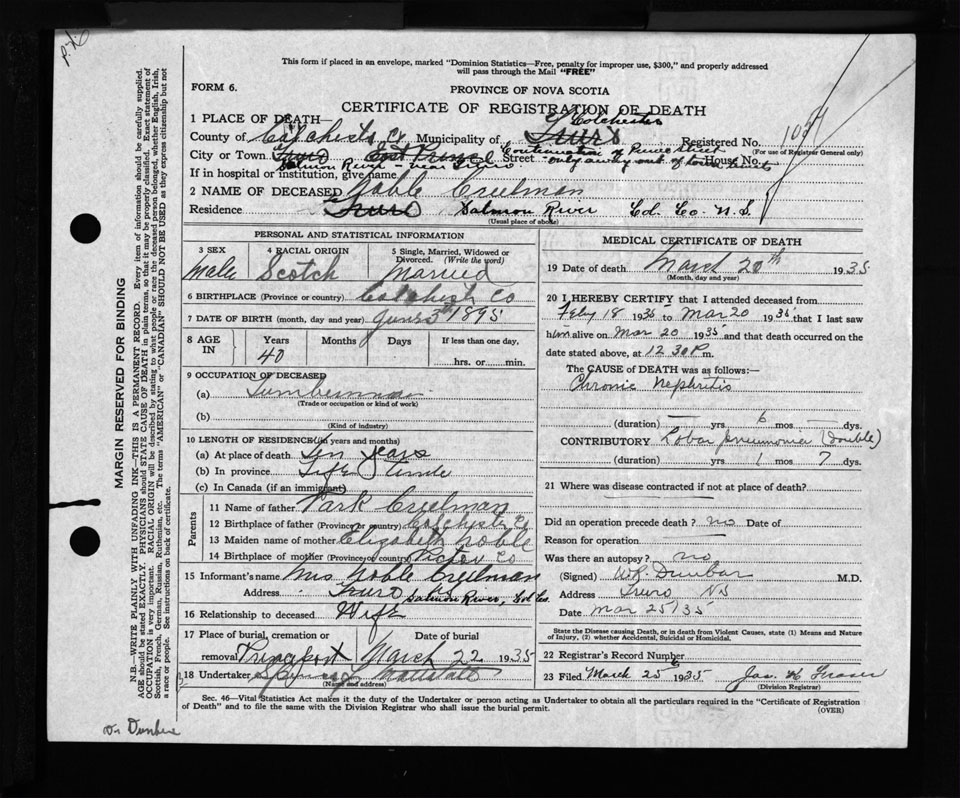 P.X.
This form if placed in an envelope, marked "Dominion Statistics—Free, penalty for improper use, $300," and properly addressed
will pass through the Mail "FREE"
FORM 6. PROVINCE OF NOVA SCOTIA
CERTIFICATE OF REGISTRATION OF DEATH
1 PLACE OF DEATH— of Colchester
County of Colchester Co Municipality of Truro Registered No. 
City or Town Truro East Prince Street Continuation of Prince Street House No. (For use of Registrar General only)
Salmon River - near Truro - only away out of town limits
If in hospital or institution, give name
2 NAME OF DECEASED Noble Creelman
Residence Truro Salmon River Col. Co. N.S.
(Usual place of abode)
PERSONAL AND STATISTICAL INFORMATION
3 SEX Male 4 RACIAL ORIGIN Scotch 5 Single, Married, Widowed or Divorced. (Write the word) Married
6 BIRTHPLACE (Province or country) Colchester Co
7 DATE OF BIRTH (month, day and year) June 3rd 1895
8 AGE IN Years 40 Months Days If less than one day, hrs. or min.
9 OCCUPATION OF DECEASED
(a) Lumberman
(Trade or occupation or kind of work)
(b)
(Kind of industry)
10 LENGTH OF RESIDENCE (in years and months)
(a) At place of death Ten years
(b) In province Life time
(c) In Canada (if an immigrant)
Parents
11 Name of father Park Creelman
12 Birthplace of father (Province or country) Colchester Co
13 Maiden name of mother Elizabeth Noble
14 Birthplace of mother (Province or country) Pictou Co
15 Informant's name Mrs Noble Creelman
Address Truro NS Salmon River, Col Co.
16 Relationship to deceased Wife
17 Place of burial, cremation or removal Princeport Date of burial March 22 1935
18 Undertaker
(Name and address)
MEDICAL CERTIFICATE OF DEATH
19 Date of death March 20th 1935
(Month, day and year)
20 I HEREBY CERTIFY that I attended deceased from
Feby 18 1935 to Mar 20 1935 that I last saw
him alive on Mar 20 1935 and that death occurred on the
date stated above, at 12.30 P.m.
The CAUSE OF DEATH was as follows:—
Chronic Nephritis
(duration) — yrs 6 mos — dys.
CONTRIBUTORY Lobar pneumonia (Double)
(duration) yrs 1 mos 7 dys.
21 Where was disease contracted if not at place of death?
Did an operation precede death? no Date of
Reason for operation
Was there an autopsy? no
(Signed) W.R. Dunbar M.D.
Address Truro NS
Date Mar 25/35
State the Disease causing Death, or in death from Violent Causes, state (1) Means and Nature
of Injury, (2) whether Accidental, Suicidal or Homicidal.
22 Registrar's Record Number
23 Filed March 25 1935 Jas. H Fraser
(Division Registrar)
Sec. 46—Vital Statistics Act makes it the duty of the Undertaker or person acting as Undertaker to obtain all the particulars required in the "Certificate of Registration
of Death" and to file the same with the Division Registrar who shall issue the burial permit. (OVER)
MARGIN RESERVED FOR BINDING
N.B.—WRITE PLAINLY WITH UNFADING INK—THIS IS A PERMANENT RECORD. Every item of information should be carefully supplied.
AGE should be stated EXACTLY. PHYSICIANS should STATE CAUSE OF DEATH in plain terms, so that it may be properly classified. Exact statement of
OCCUPATION is very important. RACIAL ORIGIN will be described by stating to what people or race the deceased person belonged, whether English, Irish,
Scottish, French, German, Russian, Ruthenian, etc. The terms "AMERICAN" or "CANADIAN" SHOULD NOT BE USED as they express citizenship but not
a race or people. See instructions on back of certificate.
Dr Dunbar